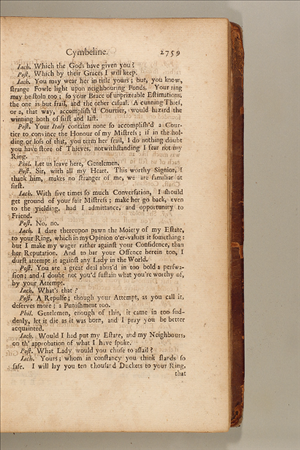 Cymbeline. 2759
Iach. Which the Gods have given you?
Post. Which by their Graces I will keep.
Iach. You may wear her in title yours; but, you know,
strange Fowle light upon neighbouring Ponds. Your ring
may be stoln too; so your Brace of unprizeable Estimations,
the one is but frail, and the other casual. A cunning Thief,
or a, that way, accomplish'd Courtier, would hazard the
winning both of first and last.
Post. Your Italy contains none so accomplish'd a Cour-
tier to convince the Honour of my Mistress; if in the hol-
ding or loss of that, you term her frail, I do nothing doubt
you have store of Thieves, notwithstanding I fear not my
Ring.
Phil. Let us leave here, Gentlemen.
Post. Sir, with all my Heart. This worthy Signior, I
thank him, makes no stranger of me, we are familiar at
first.
Iach. With five times so much Conversation, I should
get ground of your fair Mistress; make her go back, even
to the yielding, had I admittance, and opportunity to
Friend.
Post. No, no.
Iach. I dare thereupon pawn the Moiety of my Estate,
to your Ring, which in my Opinion o'er-values it something:
but I make my wager rather against your Confidence, than
her Reputation. And to bar your Offence herein too, I
durst attempt it against any Lady in the World.
Post. You are a great deal abus'd in too bold a perswa-
sion; and I doubt not you'd sustain what you're worthy of,
by your Attempt.
Iach. What's that?
Post. A Repulse; though your Attempt, as you call it,
deserves more; a Punishment too.
Phil. Gentlemen, enough of this, it came in too sud-
denly, let it die as it was born, and I pray you be better
acquainted.
Iach. Would I had put my Estate, and my Neighbours,
on th' approbation of what I have spoke.
Post. What Lady would you chuse to assail?
Iach. Yours; whom in constancy you think stands so
safe. I will lay you ten thousand Duckets to your Ring,
that